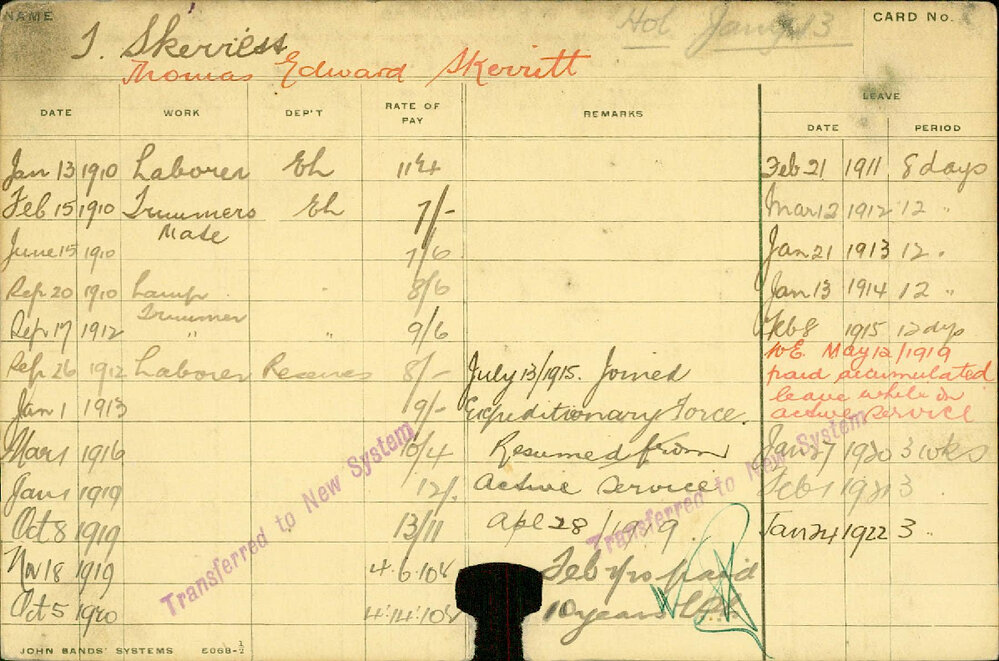 NAME
Hol Jany 13
CARD No.
T. Skerritt
Thomas Edward Skerritt
DATE WORK DEP'T RATE OF PAY REMARKS LEAVE DATE PERIOD
Jan 13 1910 Laborer Eh Feb 21 1911 8 days
Feb 15 1910 Trimmers Eh 7/- Mar 12 1912 12 "
Mate
June 15 1910 7/6 Jan 21 1913 12 "
Sep 20 1910 Lamp " 8/6 Jan 13 1914 12 "
Trimmer
Sep 17 1912 " " 9/6 Feb 8 1915 12 dys
Sep 26 1912 Laborer 8/- July 13/1915. Joined
W.E. May 12/1919
paid accumulated
Jan 1 1913 9/- Expeditionary Force.
leave while on
active service
Mar 1 1916 10/4 Resumed from Jan 27 1920 3 wks
Jan 1 1919 12/- active service Feb 1 1921 3
Oct 8 1919 13/11 Apl 28/1919. Jan 24 1922 3 "
Nov 18 1919 4.6.10½ Feb paid
Oct 5 1920 4.14.10½ 10 years
Transferred to New System
Transferred to New System
JOHN SANDS' SYSTEMS E068-½